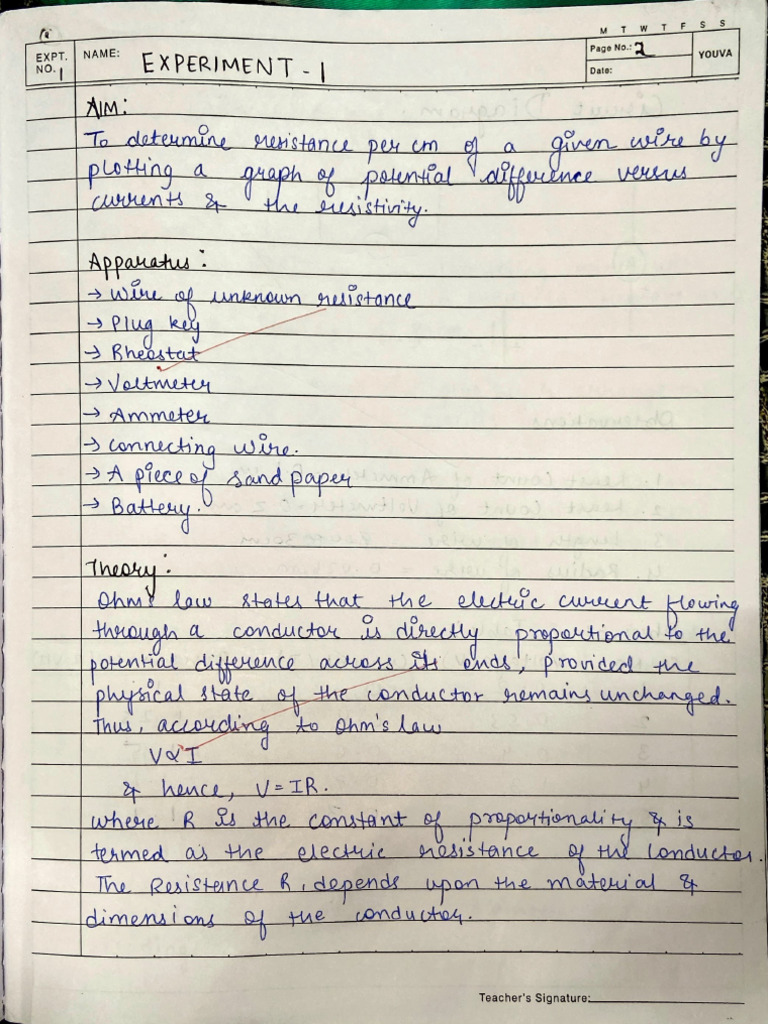 M T W T F S S
EXPT. NO. 1
NAME: EXPERIMENT - 1
Page No.: 2
Date:
YOUVA
AIM:
To determine resistance per cm of a given wire by
plotting a graph of potential difference versus
currents & the resistivity.
Apparatus:
→ Wire of unknown resistance
→ Plug key
→ Rheostat
→ Voltmeter
→ Ammeter
→ connecting wire.
→ A piece of sand paper
→ Battery.
Theory:
Ohm's law states that the electric current flowing
through a conductor is directly proportional to the
potential difference across its ends, provided the
physical state of the conductor remains unchanged.
Thus, according to Ohm's law
V∝I
& hence, V = IR.
where R is the constant of proportionality & is
termed as the electric resistance of the conductor.
The Resistance R, depends upon the material &
dimensions of the conductor.
Teacher's Signature: